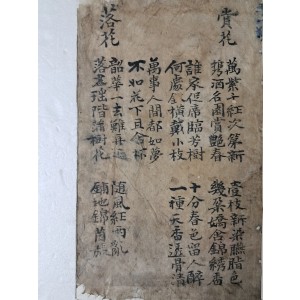 賞花
萬紫千紅次第新 壹枝新染臙脂色
携酒名園賞艷春 幾葉嬌含錦綉香
誰家促席臨芳樹 十分春色留人醉
何處金橫戴小枝 一種天香透骨清
萬事人間都如夢
不如花下且含杯
落花
韶華一去難再返 隨風紅雨亂
落盡瑶階滿樹花 鋪地錦茵